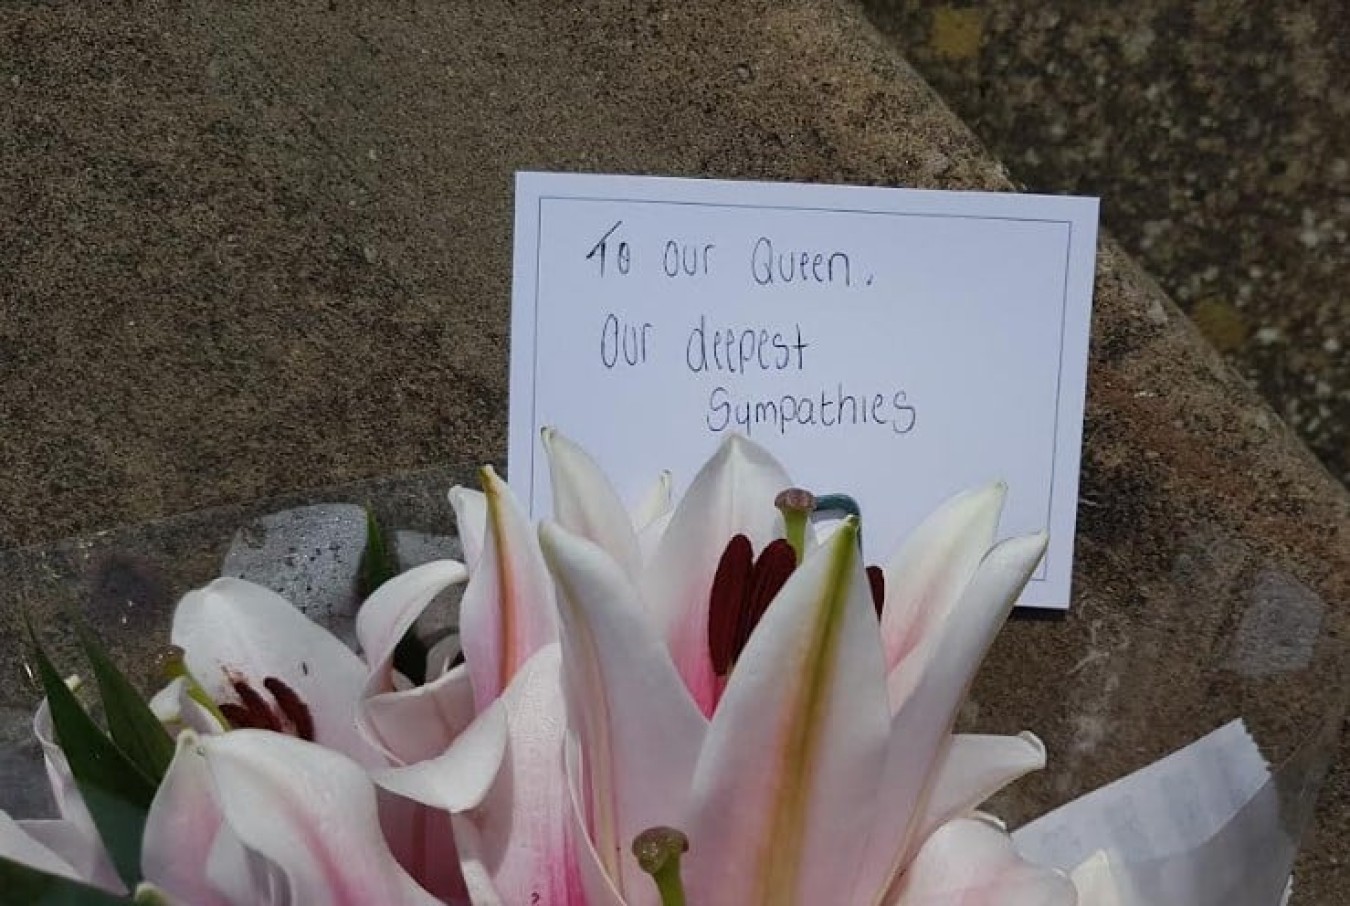 To our Queen.
Our deepest
Sympathies